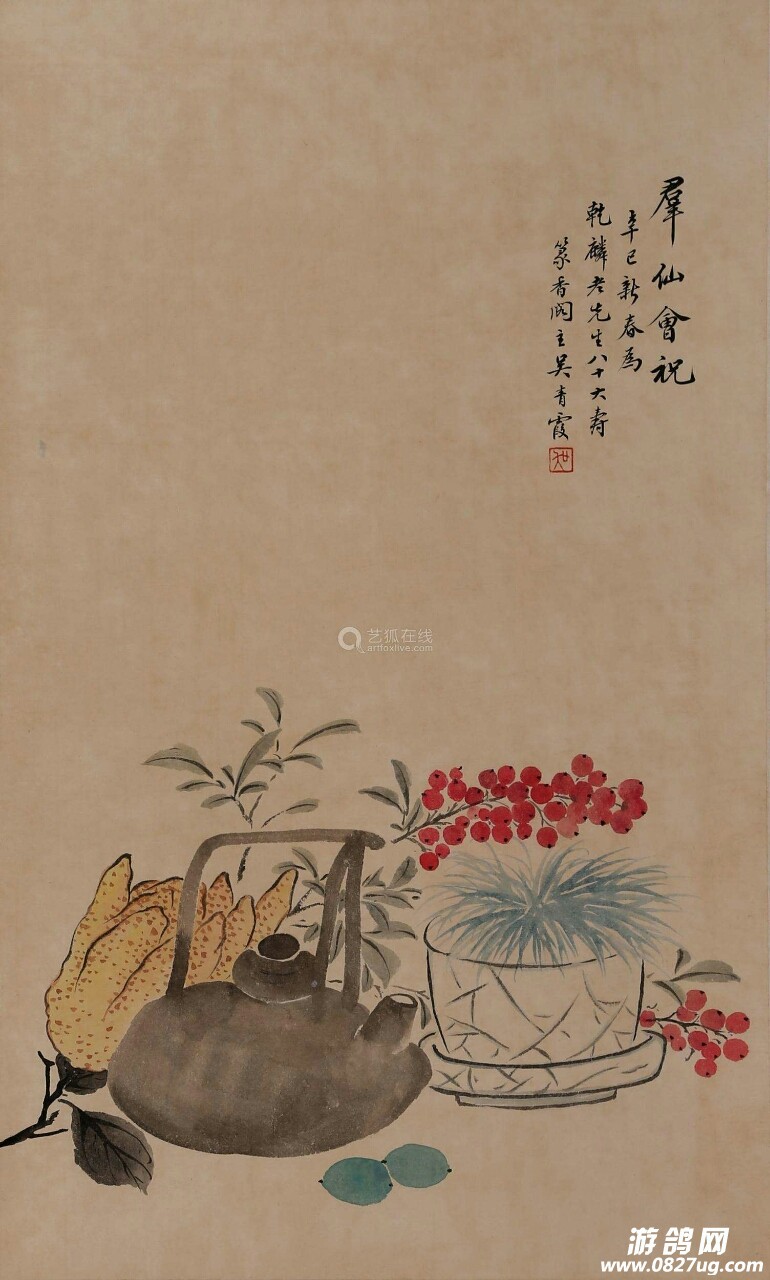 羣仙會祝
辛巳新春為
乾麟老先生八十大壽
篆香閣主吴青霞
艺狐在线
artfoxlive.com
游鸽网
www.0827ug.com